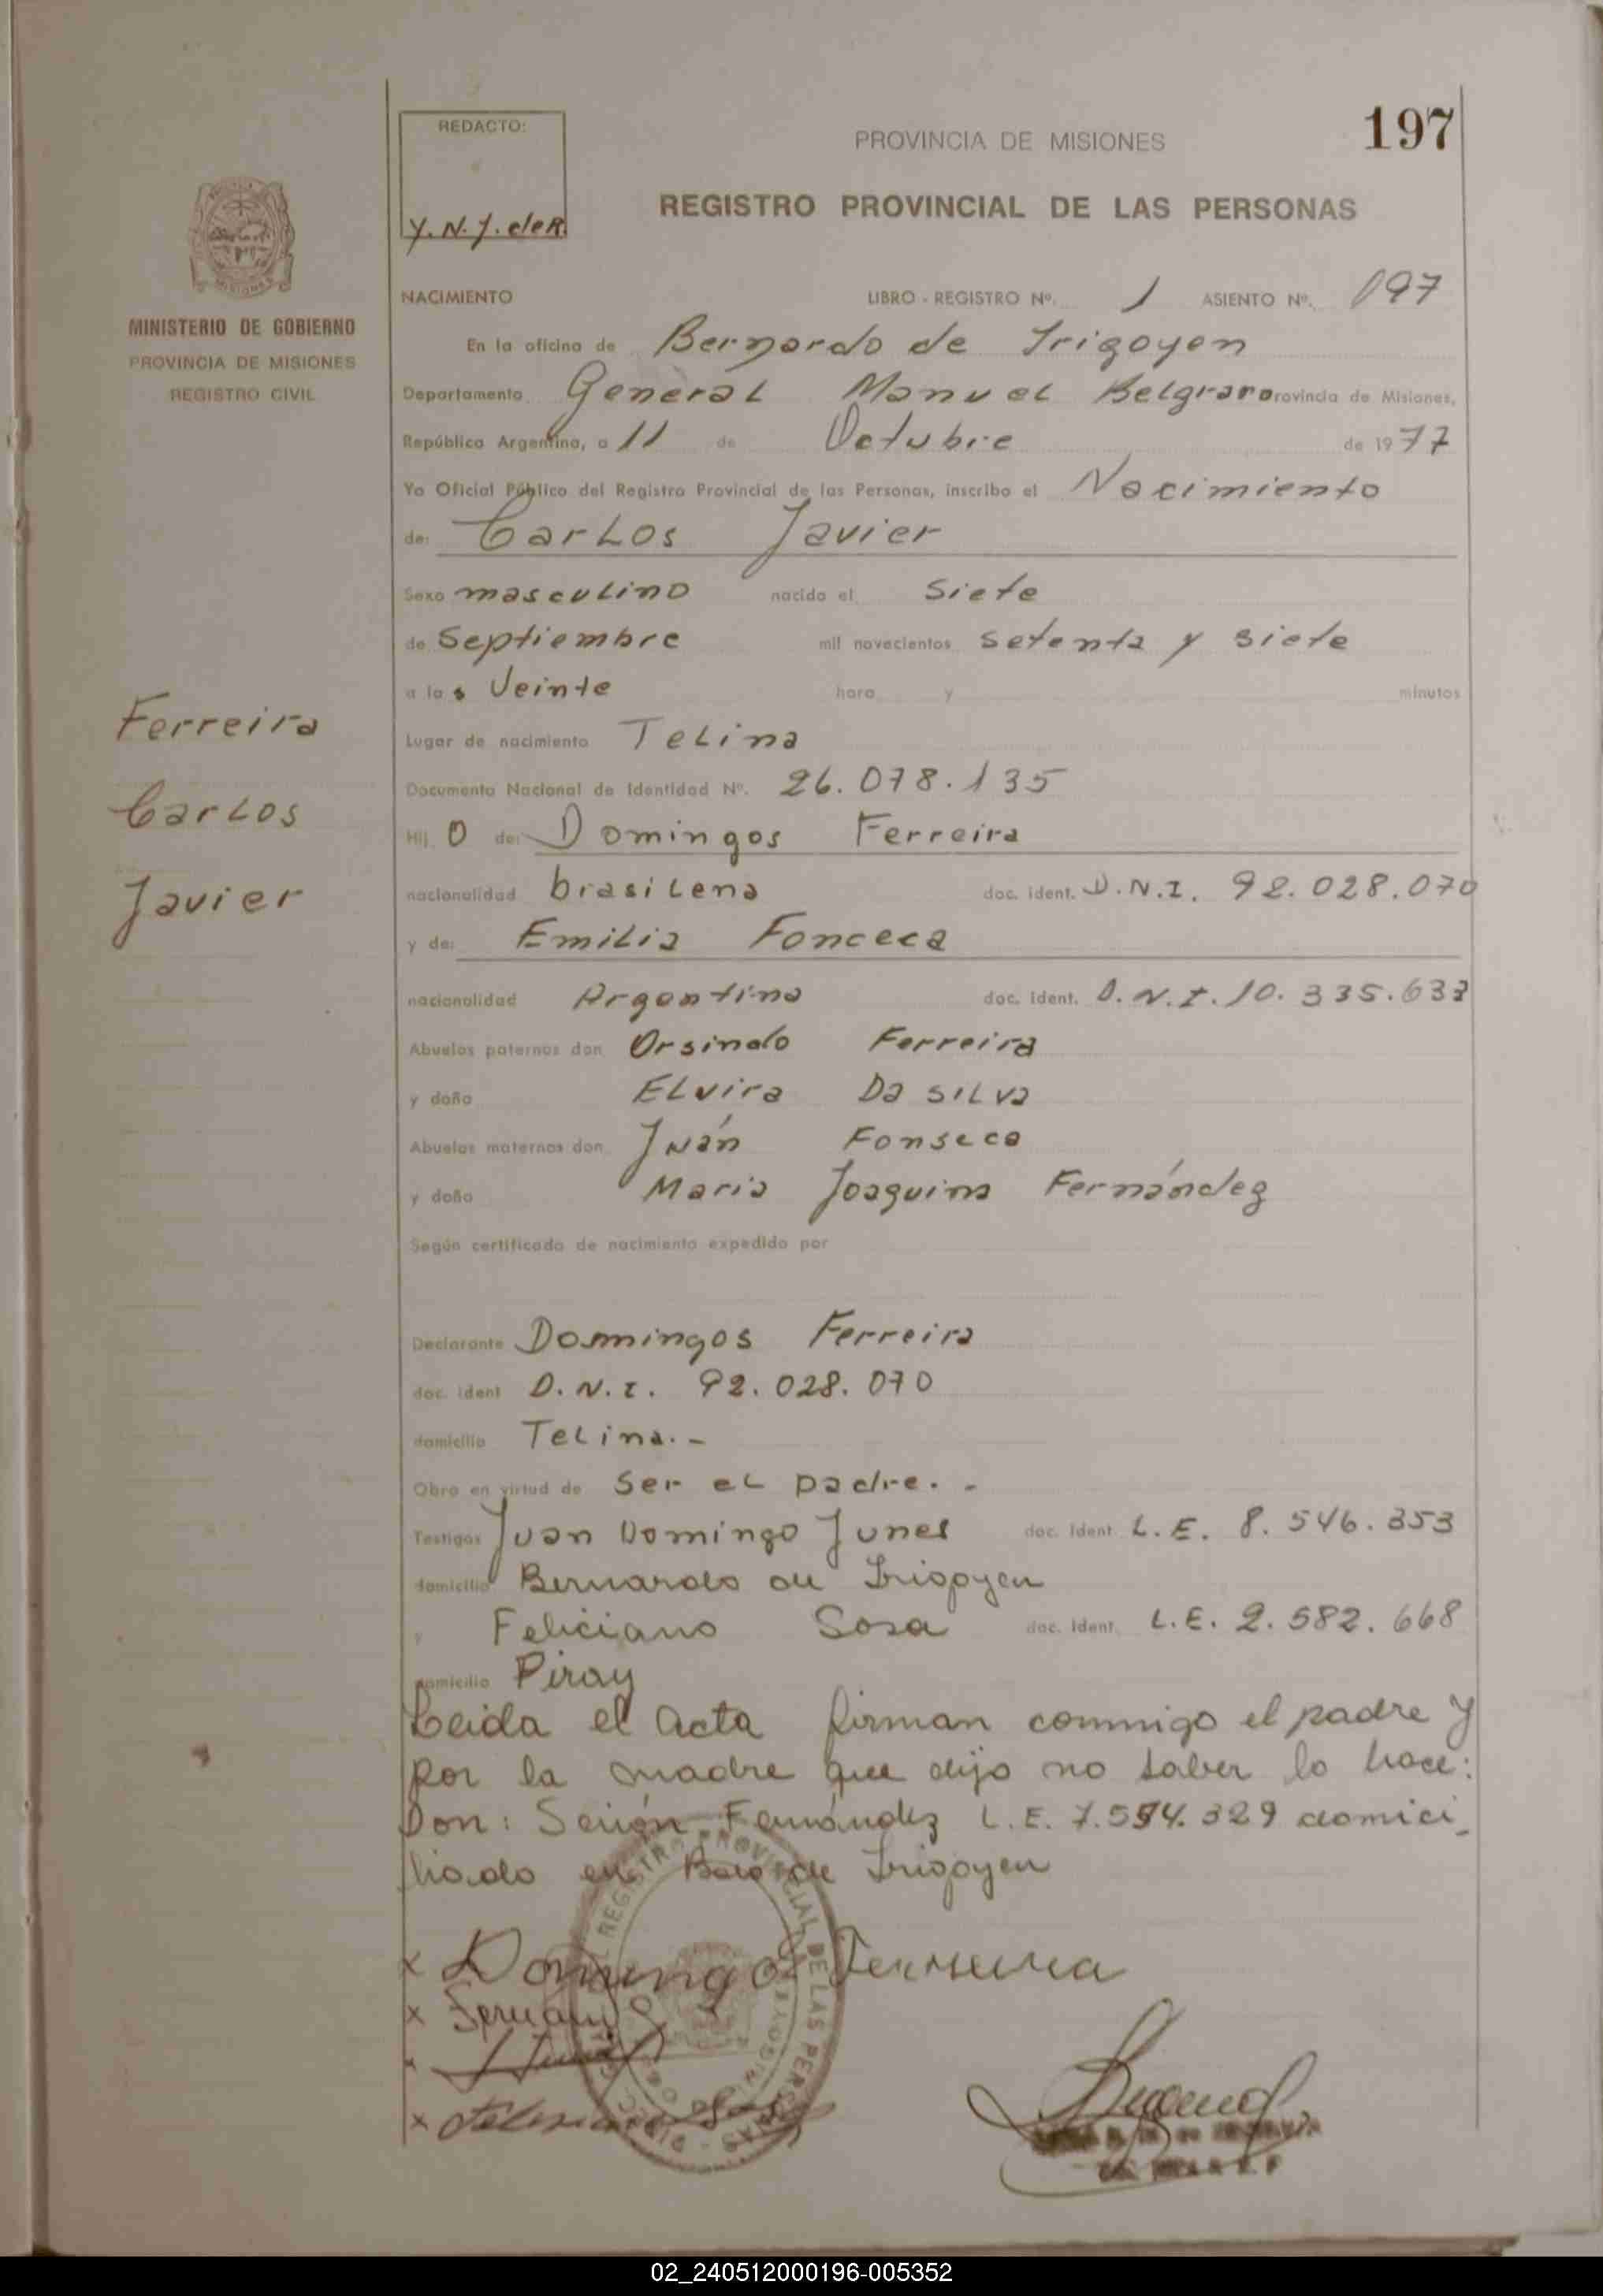 REDACTO:
Y. N. J. de R.
PROVINCIA DE MISIONES
197
REGISTRO PROVINCIAL DE LAS PERSONAS
MISIONES
MINISTERIO DE GOBIERNO
PROVINCIA DE MISIONES
REGISTRO CIVIL
NACIMIENTO LIBRO - REGISTRO Nº. 1 ASIENTO Nº. 197
En la oficina de Bernardo de Irigoyen
Departamento General Manuel Belgrano Provincia de Misiones,
República Argentina, a 11 de Octubre de 1977
Yo Oficial Público del Registro Provincial de las Personas, inscribo el Nacimiento
de: Carlos Javier
Sexo masculino nacido el Siete
de Septiembre mil novecientos setenta y siete
a las Veinte hora y minutos
Ferreira
Carlos
Javier
Lugar de nacimiento Telina
Documento Nacional de Identidad Nº. 26.078.135
Hij O de: Domingos Ferreira
nacionalidad brasilena doc. ident. D.N.I. 92.028.070
y de: Emilia Fonceca
nacionalidad Argentina doc. ident. D.N.I. 10.335.633
Abuelos paternos don Orsindo Ferreira
y doña Elvira Da Silva
Abuelos maternos don Juán Fonseca
y doña Maria Joaquina Fernández
Según certificado de nacimiento expedido por
Declarante Domingos Ferreira
doc. ident D.N.I. 92.028.070
domicilio Telina.-
Obra en virtud de Ser el padre.-
Testigos Juan Domingo Junes doc. ident. L.E. 8.546.353
domicilio Bernardo de Irigoyen
y Feliciano Sosa doc. ident. L.E. 2.582.668
domicilio Piray
Leida el acta firman conmigo el padre y
por la madre que dijo no saber lo hace:
Don: Fernández L.E. 7.594.329 domici
liado en Bdo de Irigoyen
x Domingos Ferreira
x
x
REGISTRO PROVINCIAL DE LAS PERSONAS
02_240512000196-005352